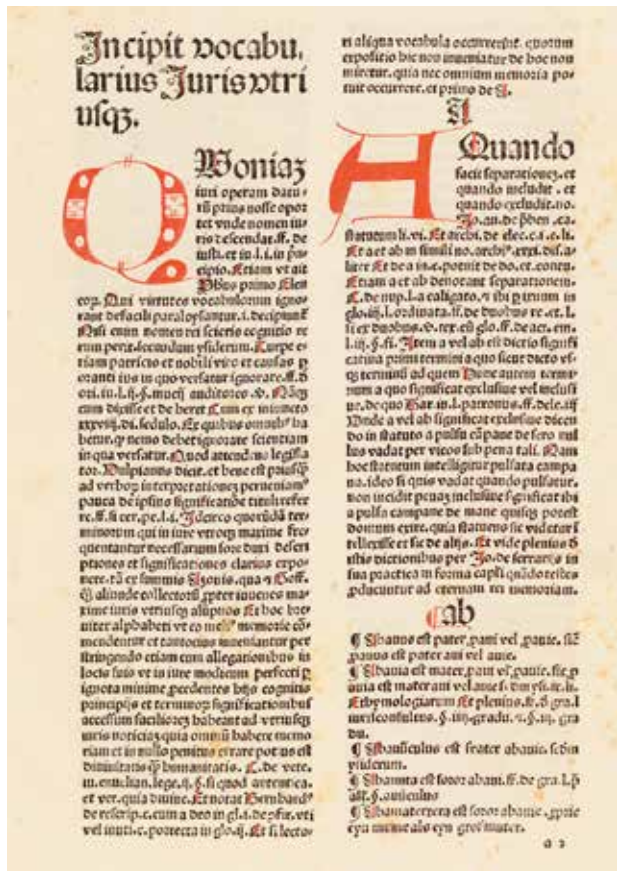 Incipit vocabu,
larius Juris vtri
usqꝫ.
QUoniaꝫ
iuri operam datu-
rū prius nosse opor
tet vnde nomen iu-
ris descendat.ff. de
iusti. et iu. l. i. in prin
cipio. Etiam vt ait
primo Elen
coꝝ. Qui virtutes vocabulorum igno-
rant defacili paralogisantur. i. decipiunt
Nisi enim nomen rei scieris cognitio re
rum perit. secundum ysiderum. Turpe e-
niam patricio et nobili viro et causas
oranti ius in quo versatur ignorare. ff. d
ori. iu. l. ij. §. mucij auditores
cum dixisse et de heret Cum ex iniuncto
xxxviij. di. sedulo. Ex quibus omnibꝰ ha
betur. ꝙ nemo debet ignorare scientiam
in qua versatur. Quod attendens legisla
tor. Vulpianus dicit. et bene est priusqꝫ
ad verboꝝ interpretationes perueniamꝰ
pauca de ipsius significatiōe tituli refer
re. ff. si cer. pe. l. i. Idcirco quorūdā ter-
minorum qui in iure vtroqꝫ maxime fre
quentantur necessarium fore duxi descri
ptiones et significationes clarius expo-
nere. tā ex summis
aliunde collectoꝝ propter iuuenes ma-
xime iuris vtriusqꝫ Et hoc bre-
uiter alphabeti vt eo meliꝰ memorie cō-
mendentur et tantocius inueniantur per
stringendo etiam cum allegationibus in
locis suis vt in iure modicum perfecti
ignota minime perdentes hijs cognitis
principijs et terminoꝝ significationibus
accessum faciliorem habeant ad vtriusqꝫ
iuris noticiaꝫ quia omniū habere memo
riam et in nullo penitus errare potius est
diuinitatis ꝙ humanitatis. C. de vete.
iu. enuclean. lege. ij. §. si quod
et ver. quia diuine. Et notat Bernhardꝰ
de rescrip. c. cum a deo in gl.
vel in c. porrecta in glo. ij. Et si lecto-
ri aliqua vocabula occurrerint. quorum
expositio hic non inueniatur de hoc non
miretur. quia nec omnium memoria po-
tuit occurrere. et primo de A.
A
A Quando
facit separationeꝫ. et
quando includit. et
quando excludit. no.
Jo. an. de . ca.
statutum li. vi. Et archi. de elec. c. i. e. li.
Et a et ab in simili no. archiꝰ. xxxi. dis. a-
liter Et de a in. c. potuit de do. et contu.
Etiam a et ab denotant separationem.
C. de nup. l. a caligato. ibi in
glo. iij. l. ordinata. ff. de duobus re. et. l.
si ex duobus. tex. cū glo. ff. de act. em.
l. iij. §. fi. Item a vel ab est dictio signifi
catiua primi termini a quo sicut dicto vs-
qꝫ termini ad quem Vnde autem termi-
num a quo significat exclusiue vel inclusi
ue. de quo Bar. in. l. patronus. ff. de le. iij
Vnde a vel ab significat exclusiue dicen
do in statuto a pulsu cāpane de sero nul
lus vadat per vicos sub pena tali. Nam
hoc statutum intelligitur pulsata campa
na. ideo si quis vadat quando pulsatur.
non incidit penaꝫ inclusiue significat ibi
a pulsu campane de mane quisqꝫ potest
domum exire. quia statuens sic videtur i
tellexisse et sic de alijs. Et vide plenius d
istis dictionibus per Jo. de ferrarijs in
sua practica in forma capli quādo testes
producuntur ad eternam rei memoriam.
Cab
¶ Abauus est pater proaui vel proauie. sic
proauus est pater aui vel auie.
¶ Abauia est mater proaui vel proauie. sic p
auia est mater aui vel auie s. dm ysi. ix. li.
Ethymologiarum Et plenius. ff. d gra. l
iurisconsultus. §. iiij. gradu. §. iij. gra
du.
¶ Abauūculus est frater abauie. scdm
ysiderum.
¶ Abamita est soror abaui. ff. de gra.
§. auūculus
¶ Abmatertera est soror abauie. proprie
eyn mume als eyn groſmuter.
a 2